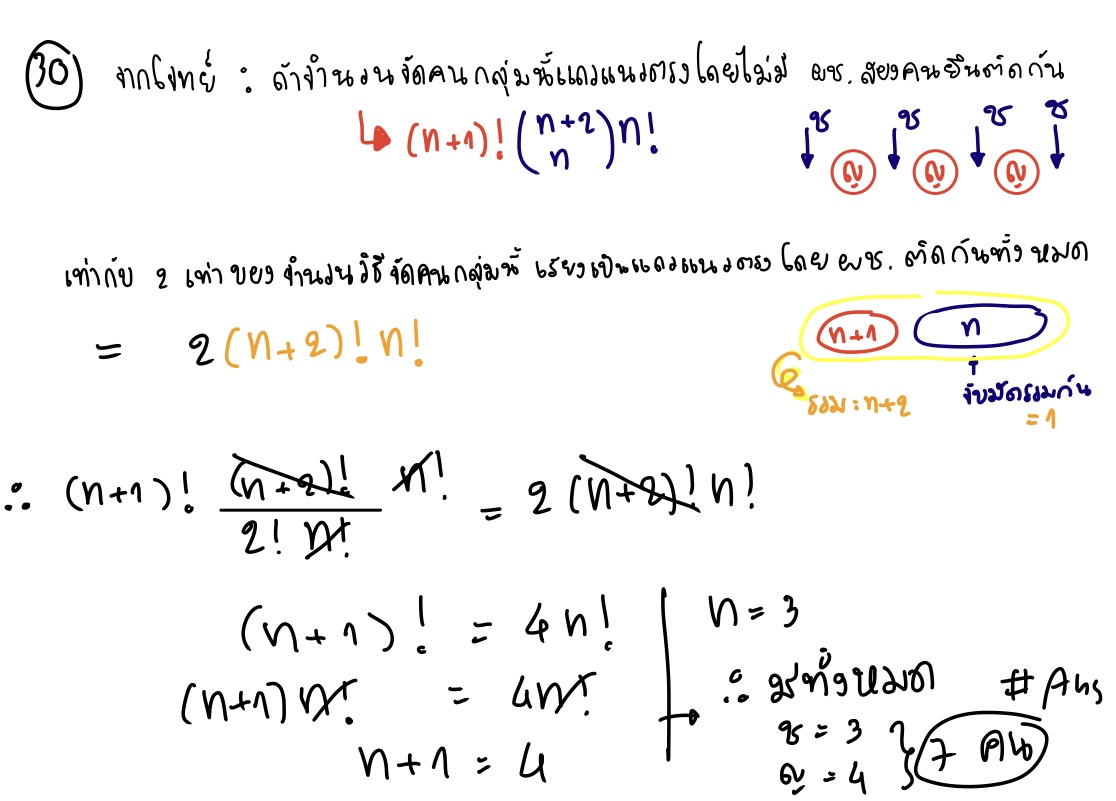 30 จากโจทย์ : ถ้าจำนวนจัดคนกลุ่มนี้แถวแนวตรงโดยไม่มี ผช. สองคนยืนติดกัน
↳ (n+1)! (n+2 n) n!
ช ช ช ช
ญ ญ ญ
เท่ากับ 2 เท่าของจำนวนวิธีจัดคนกลุ่มนี้ เรียงเป็นแถวแนวตรง โดย ผช. ติดกันทั้งหมด
= 2 (n+2)! n!
n+1 n
รวม : n+2
จับมัดรวมกัน
= 1
∴ (n+1)! (n+2)! / 2! n! n! = 2 (n+2)! n!
(n+1)! = 4n!
(n+1) n! = 4n!
n+1 = 4
n = 3
∴ มีทั้งหมด # Ans
ช = 3
ญ = 4
7 คน